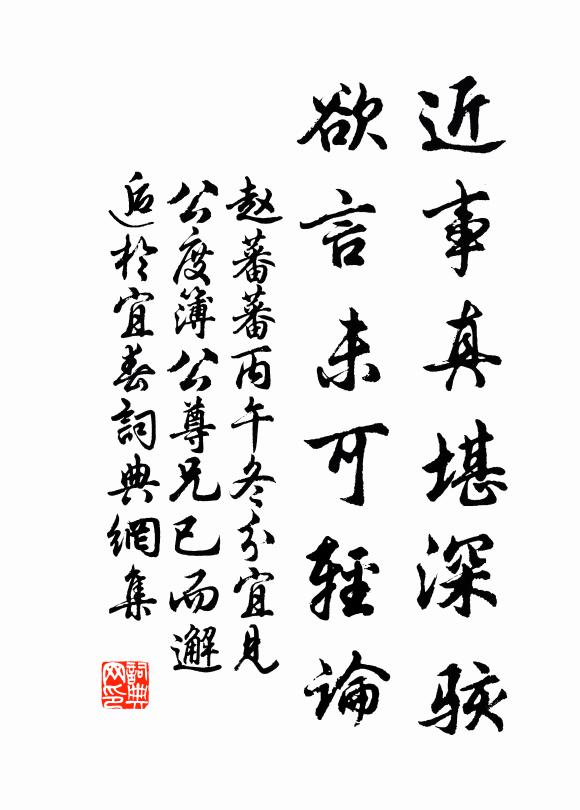 近事真堪深骇
欲言未可輕論
赵蕃蕃丙午冬分宜見
公度簿公尊兄已而邂
逅於宜春詞典網集
詞典
网印